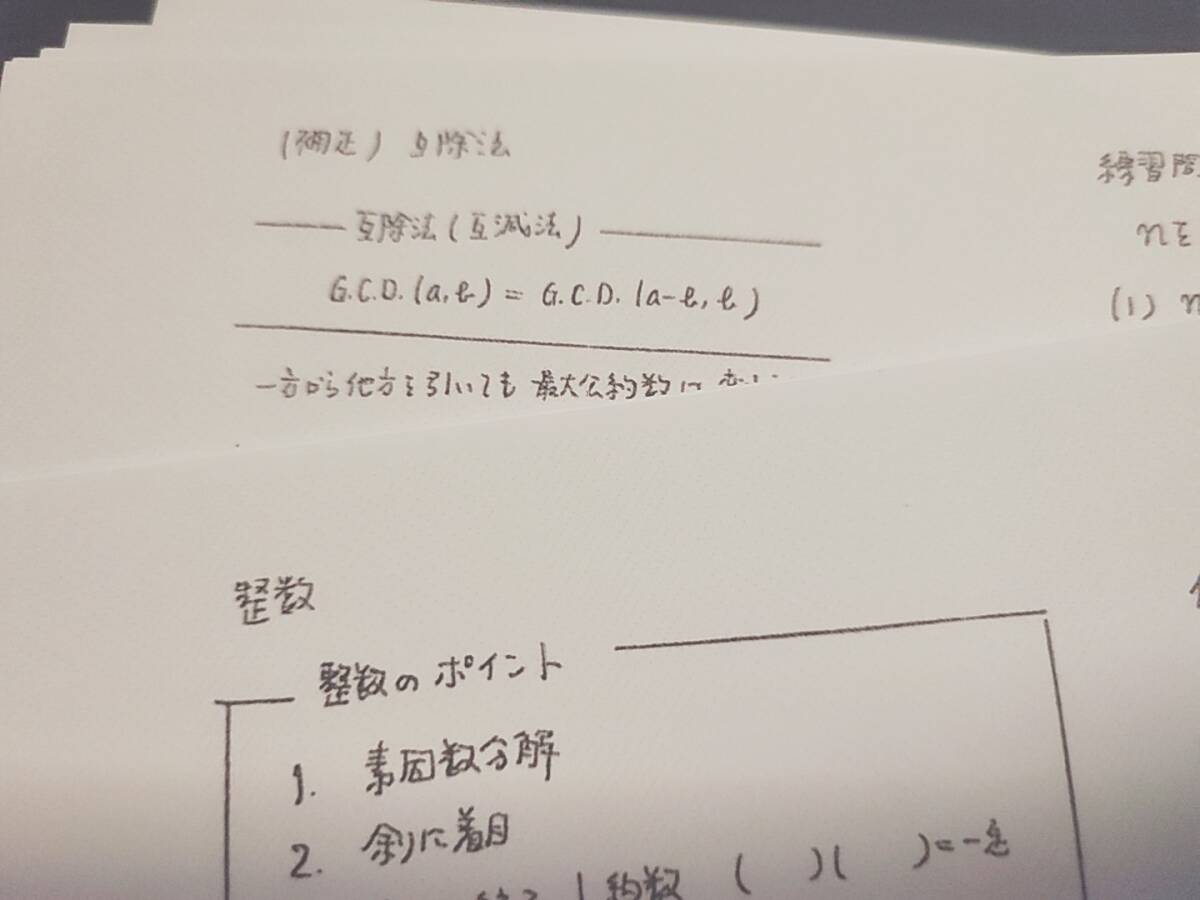 (補足) 互除法
互除法(互減法)
G.C.D.(a,b) = G.C.D.(a-b,b)
一方から他方を引いても最大公約数は
練習問
nを
(1) n
整数
整数のポイント
1. 素因数分解
2. 余りに着目
約数 ( )( )=一定